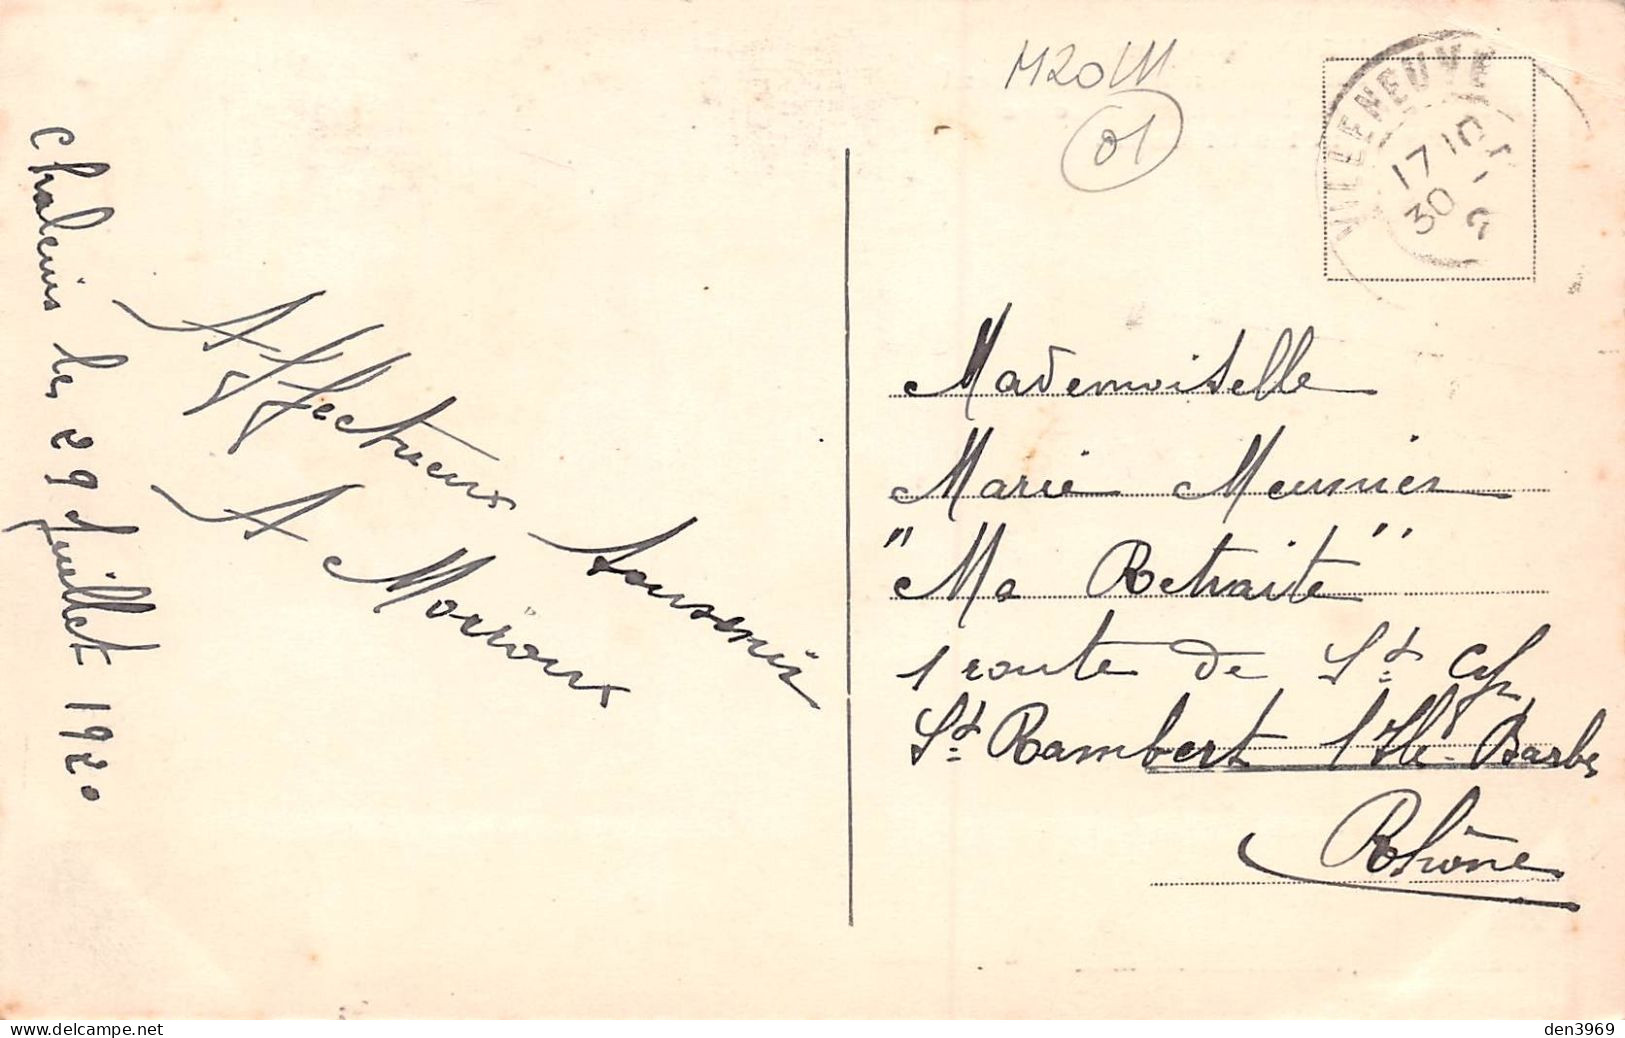 M20111
01
VILLENEUVE
17 10
30 -7
Chaleins les 29 Juillet 1920
Affectueux Souvenir
A Morioux
Mademoiselle
Marie Meunier
"Ma Retraite"
1 route de St Cyr
St Rambert l'Ile-Barbe
Rhône
den3969